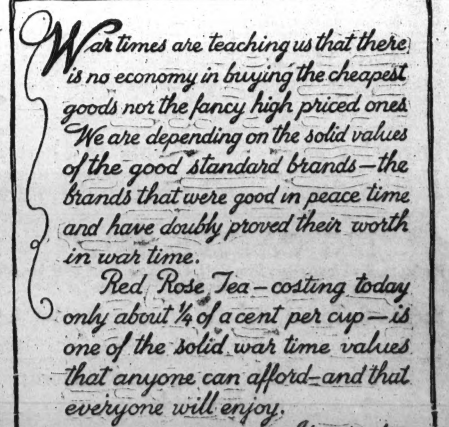 War times are teaching us that there
is no economy in buying the cheapest
goods nor the fancy high priced ones
We are depending on the solid values
of the good standard brands—the
brands that were good in peace time
and have doubly proved their worth
in war time.
Red Rose Tea—costing today
only about ¼ of a cent per cup—is
one of the solid war time values
that anyone can afford—and that
everyone will enjoy.